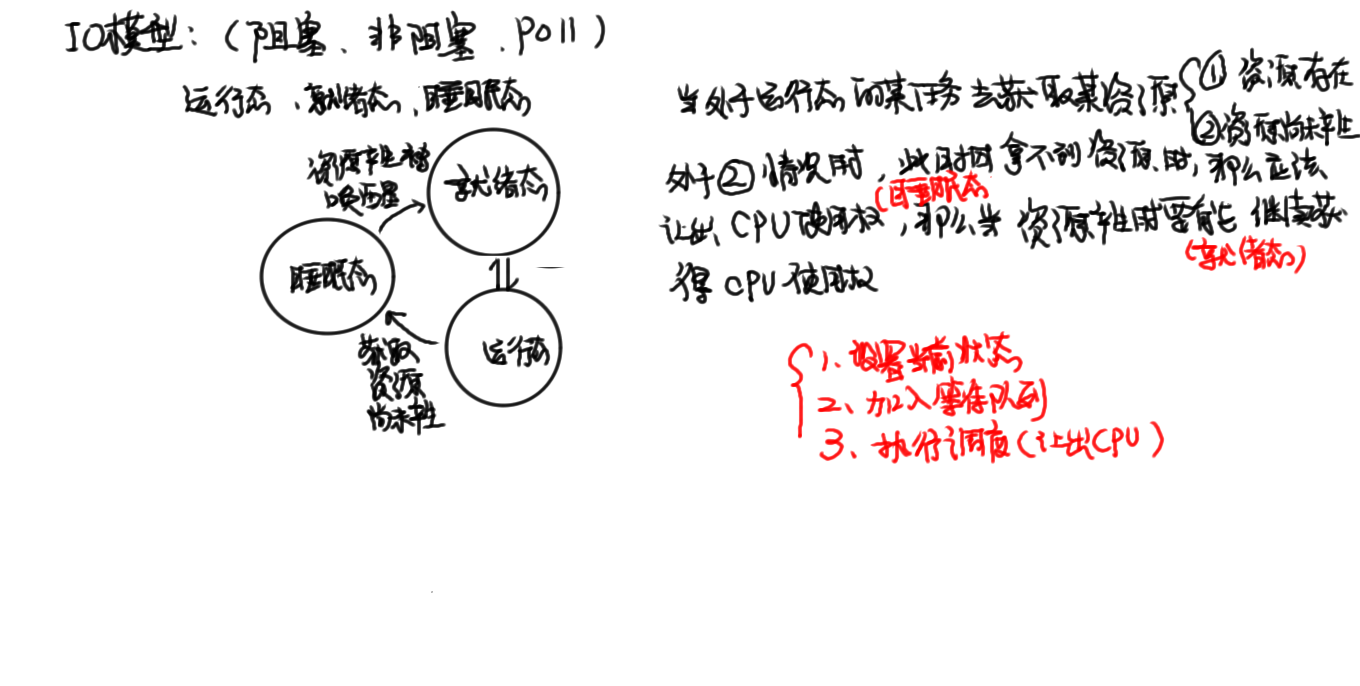 IO模型:（阻塞、非阻塞、poll）
运行态、就绪态、睡眠态
资源产生被
唤醒
就绪态
睡眠态
运行态
获取
资源
尚未产生
当处于运行态的某任务去获取某资源
① 资源存在
②资源尚未产生
处于②情况时，此时因拿不到资源时，那么应该
(睡眠态
让出CPU使用权，那么当资源产生时要有它继续获
(就绪态)
得CPU使用权
1、设置当前状态
2、加入等待队列
3、执行调度(让出CPU)